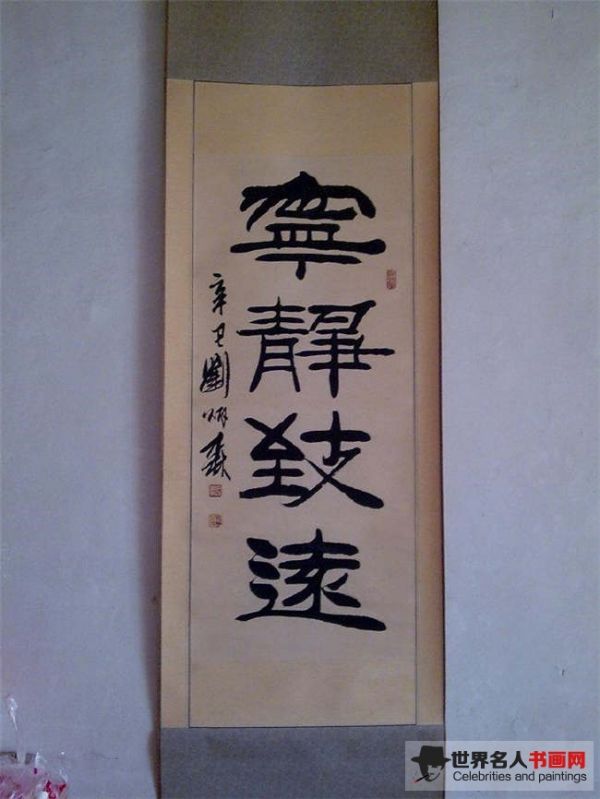 寧靜致遠
辛卯劉炳森
世界名人书画网
Celebrities and paintings